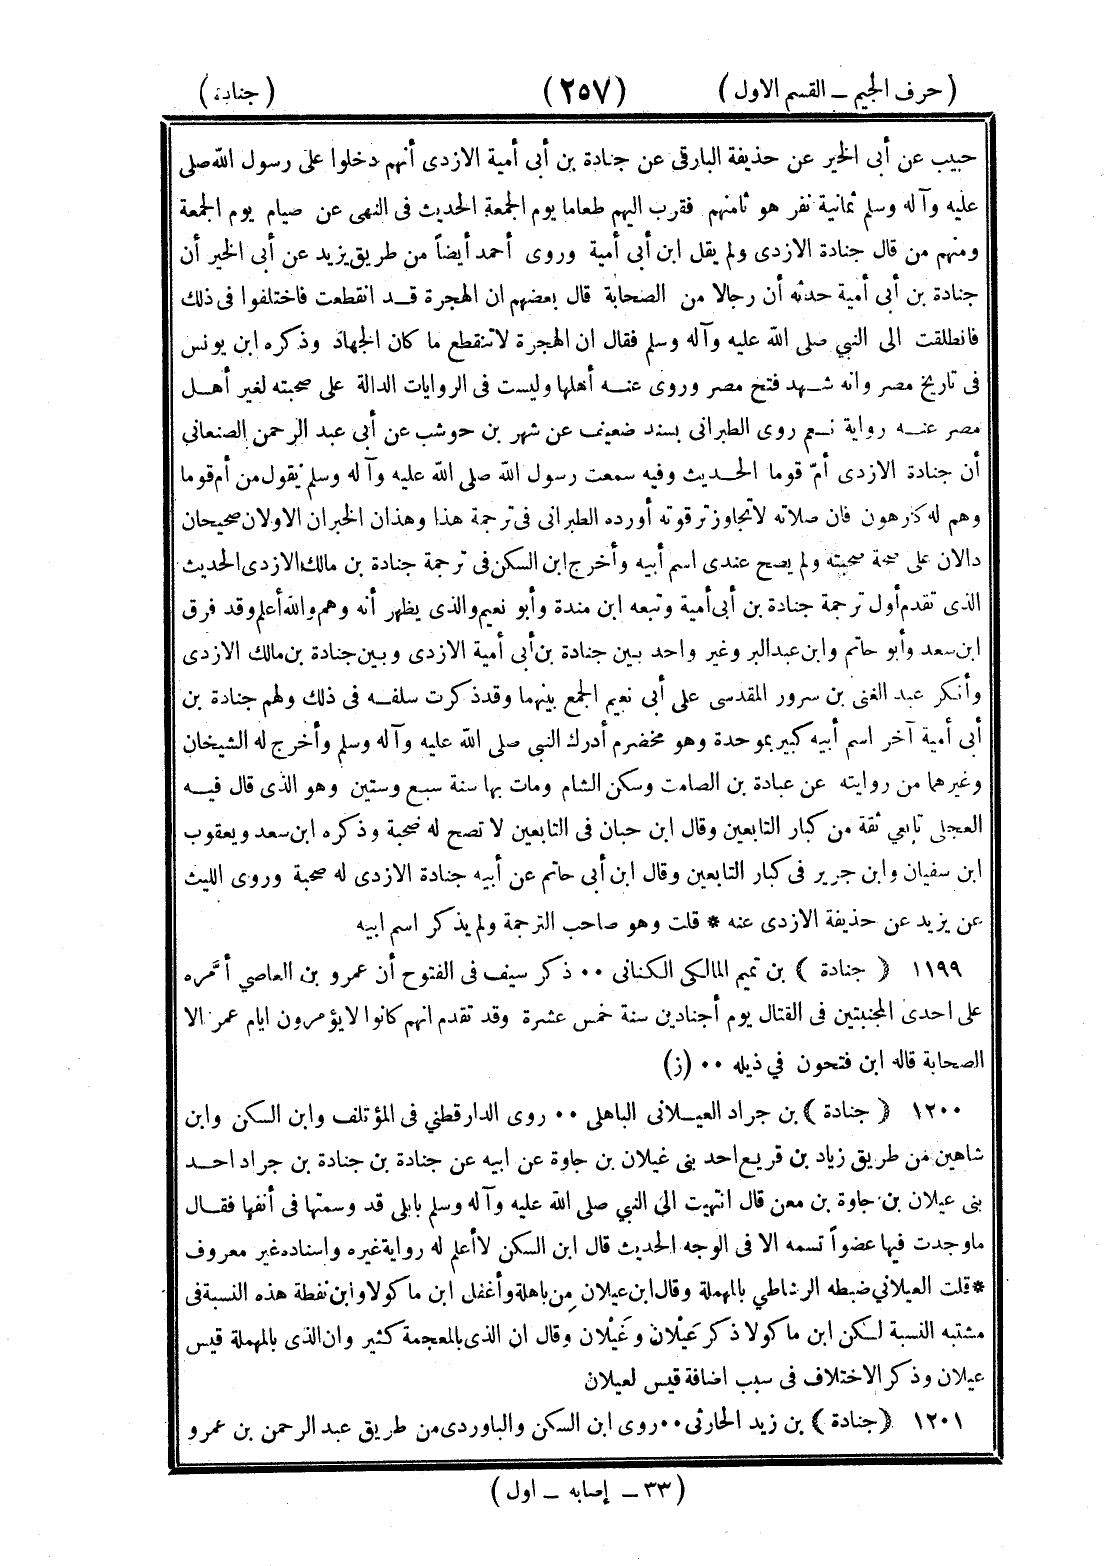 ( حرف الجيم ــ القسم الاول )
( ٢٥٧ )
( جنادة )
حبيب عن أبى الخير عن حذيفة البارقى عن جنادة بن أبى أمية الازدى أنهم دخلوا على رسول الله صلى
عليه وآله وسلم ثمانية نفر هو ثامنهم فقرب اليهم طعاما يوم الجمعة الحديث فى النهى عن صيام يوم الجمعة
ومنهم من قال جنادة الازدى ولم يقل ابن أبى أمية وروى أحمد أيضاً من طريق يزيد عن أبى الخير أن
جنادة بن أبى أمية حدثه أن رجالا من الصحابة قال بعضهم ان الهجرة قد انقطعت فاختلفوا فى ذلك
فانطلقت الى النبي صلى الله عليه وآله وسلم فقال ان الهجرة لاتنقطع ما كان الجهاد وذكره ابن يونس
فى تاريخ مصر وانه شهد فتح مصر وروى عنه أهلها وليست فى الروايات الدالة على صحبته لغير أهل
مصر عنه رواية نعم روى الطبرانى بسند ضعيف عن شهر بن حوشب عن أبى عبد الرحمن الصنعانى
أن جنادة الازدى أمّ قوما الحديث وفيه سمعت رسول الله صلى الله عليه وآله وسلم يقول من أم قوما
وهم له كارهون فان صلاته لاتجاوز ترقوته أورده الطبرانى فى ترجمة هذا وهذان الخبران الاولان صحيحان
دالان على صحة صحبته ولم يصح عندى اسم أبيه وأخرج ابن السكن فى ترجمة جنادة بن مالك الازدى الحديث
الذى تقدم أول ترجمة جنادة بن أبى أمية وتبعه ابن مندة وأبو نعيم والذى يظهر أنه وهم والله أعلم وقد فرق
ابن سعد وأبو حاتم وابن عبد البر وغير واحد بين جنادة بن أبى أمية الازدى وبين جنادة بن مالك الازدى
وأنكر عبد الغنى بن سرور المقدسى على أبى نعيم الجمع بينهما وقد ذكرت سلفه فى ذلك ولهم جنادة بن
أبى أمية آخر اسم أبيه كبير بموحدة وهو مخضرم أدرك النبي صلى الله عليه وآله وسلم وأخرج له الشيخان
وغيرهما من روايته عن عبادة بن الصامت وسكن الشام ومات بها سنة سبع وستين وهو الذى قال فيه
العجلى تابعي ثقة من كبار التابعين وقال ابن حبان فى التابعين لا تصح له صحبة وذكره ابن سعد ويعقوب
ابن سفيان وابن جرير فى كبار التابعين وقال ابن أبى حاتم عن أبيه جنادة الازدى له صحبة وروى الليث
عن يزيد عن حذيفة الازدى عنه * قلت وهو صاحب الترجمة ولم يذكر اسم ابيه
١١٩٩ ( جنادة ) بن تميم المالكى الكنانى ٠٠ ذكر سيف فى الفتوح أن عمرو بن العاصي أمّره
على احدى المجنبتين فى القتال يوم أجنادين سنة خمس عشرة وقد تقدم انهم كانوا لايؤمرون ايام عمر الا
الصحابة قاله ابن فتحون في ذيله ٠٠ (ز)
١٢٠٠ ( جنادة ) بن جراد العيلانى الباهلى ٠٠ روى الدارقطني فى المؤتلف وابن السكن وابن
شاهين من طريق زياد بن قريع احد بنى غيلان بن جاوة عن ابيه عن جنادة بن جنادة بن جراد احد
بنى عيلان بن جاوة بن معن قال انتهيت الى النبي صلى الله عليه وآله وسلم بابلى قد وسمتها فى أنفها فقال
ماوجدت فيها عضواً تسمه الا فى الوجه الحديث قال ابن السكن لاأعلم له رواية غيره واسناده غير معروف
*قلت العيلاني ضبطه الرشاطي بالمهملة وقال ابن عيلان من باهلة وأغفل ابن ماكولا وابن نفطة هذه النسبة فى
مشتبه النسبة لكن ابن ماكولا ذكر عَيْلان وغَيْلان وقال ان الذى بالمعجمة كثير وان الذى بالمهملة قيس
عيلان وذكر الاختلاف فى سبب اضافة قيس لعيلان
١٢٠١ ( جنادة ) بن زيد الحارثى ٠٠ روى ابن السكن والباوردى من طريق عبد الرحمن بن عمرو
( ٣٣ ــ إصابه ــ اول )